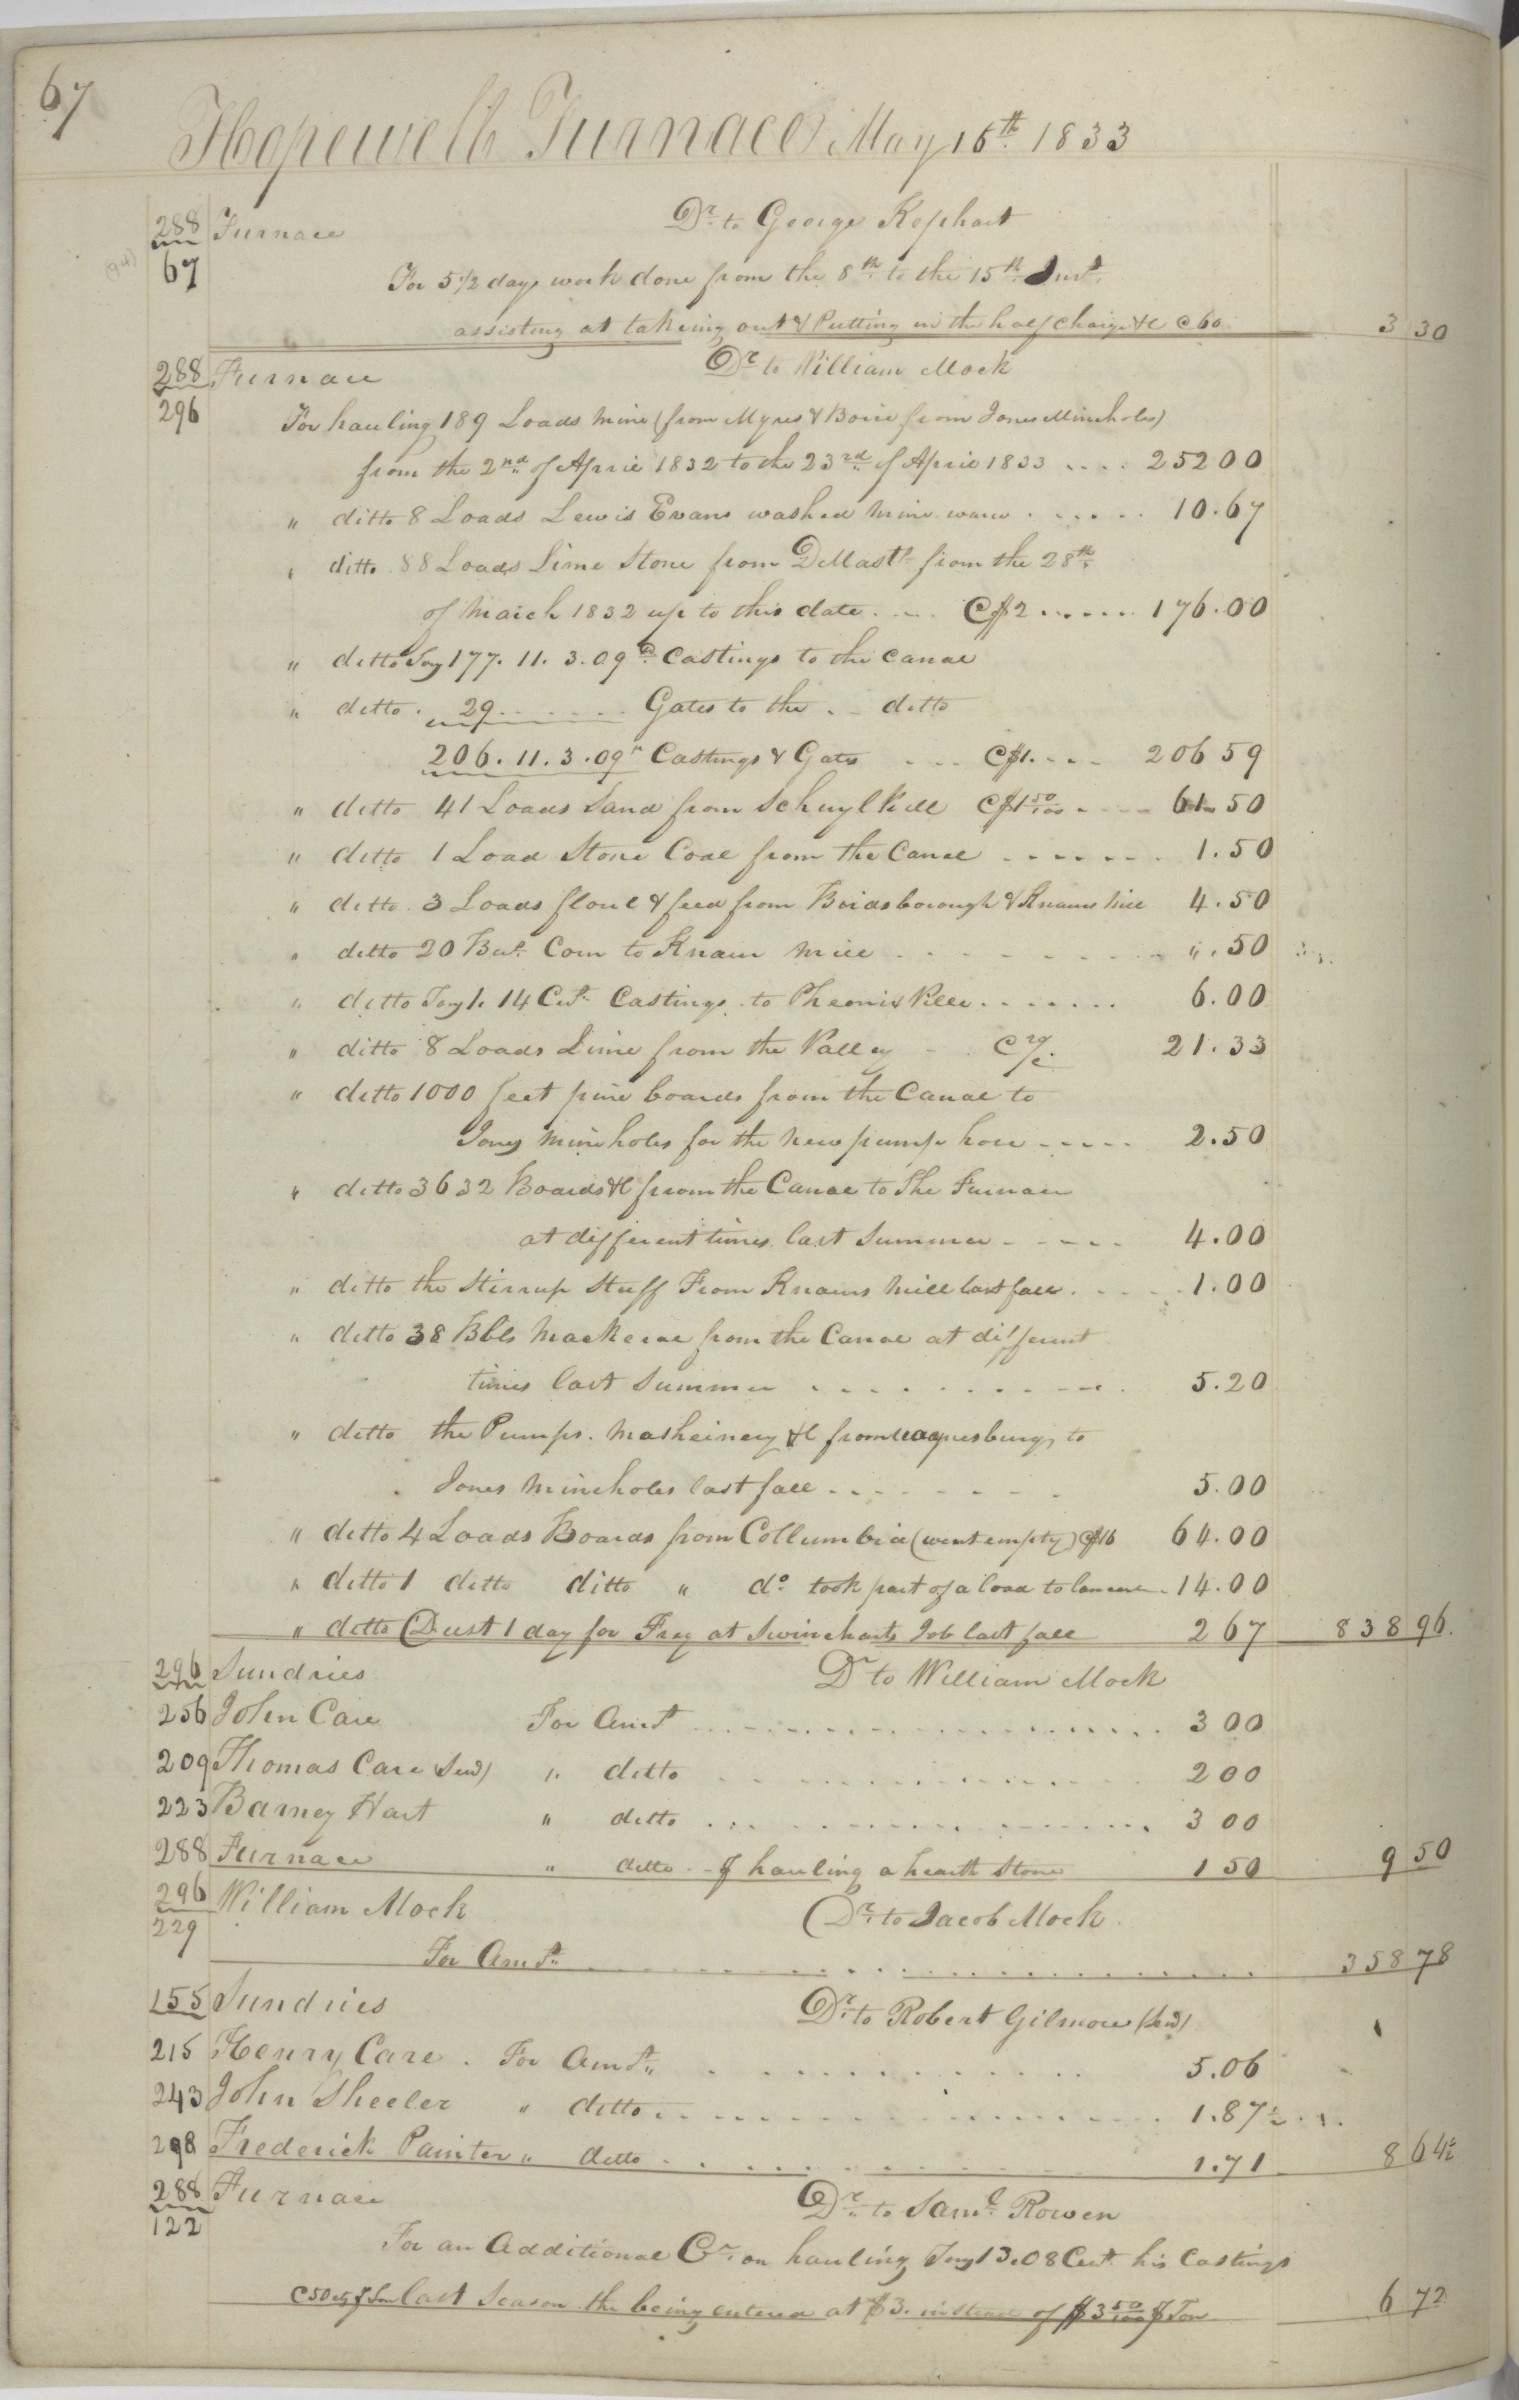 67
Hopewell Furnace May 15th 1833
288 Furnace Dr. to George Kephart
67 For 5 1/2 days work done from the 8th to the 15th Inst.
assisting at takeing out & Putting in the half charge &c @ 60 3 30
288 Furnace Dr. to William Mock
296 For hauling 189 Loads mine (from Myres & Boice from Jones Mineholes)
from the 2nd of April 1832 to the 23rd of April 1833 .... 252 00
" ditto 8 Loads Lewis Evans washed mine ...... 10.67
" ditto 88 Loads Lime Stone from from the 28th
of March 1832 up to this date .... @ $2 ...... 176.00
" ditto Tons 177. 11. 3. 09 Castings to the Canal
" ditto . 29 ...... Gates to the .. ditto
206. 11. 3. 09 Castings & Gates ... @ $1. ... 206 59
" ditto 41 Loads Sand from Schuylkill @ $1 50/100 .... 61.50
" ditto 1 Load Stone Coal from the Canal ....... 1.50
" ditto 3 Loads flour & feed from Birdsborough & Knauers Mill 4.50
" ditto 20 Bus. Corn to Knauer Mill ......... ".50
" ditto Tons 1. 14 Cwt. Castings to Pheonixville ....... 6.00
" ditto 8 Loads Lime from the Valley 21.33
" ditto 1000 feet pine boards from the Canal to
Jones mineholes for the new pump house ..... 2.50
" ditto 3632 Boards &c from the Canal to The Furnace
at different times last Summer ..... 4.00
" ditto the Stirrup Stuff From Knauers Mill last fall ..... 1.00
" ditto 38 Bbls Mackerel from the Canal at different
times last Summer .......... 5.20
" ditto the Pumps. Masheinery &c from waynesburg to
Jones Mineholes last fall ........ 5.00
" ditto 4 Loads Boards from Collumbia (went empty) @ $16 64.00
" ditto 1 ditto ditto " do. took part of a load to . 14.00
" ditto Dust 1 day for Frey at Swineharts Job last fall 2 67 838 96.
296 Sundries Dr to William Mock
256 John Care For Amt .................... 3 00
209 Thomas Care Send) " ditto ................ 2 00
223 Barney Hart " ditto .................... 3 00
288 Furnace " ditto .. of hauling a hearth Stone 1 50 9 50
296 William Mock Dr. to Jacob Mock
229
For Amt. .................... 358 78
155 Sundries Dr. to Robert Gilmore (Send)
215 Henry Care . For Amt. .............. 5.06
243 John Sheeler " ditto .................... 1.87 1/2
298 Frederick Painter " ditto .............. 1.71 8 64 1/2
288 Furnace Dr. to Saml. Rowen
122
For an Additional Cr. on hauling Tons 13.08 Cwt. his Castings
@ 50 cts p Ton last Season the being entered at $3. instead of $3 50/100 p Ton 6 72